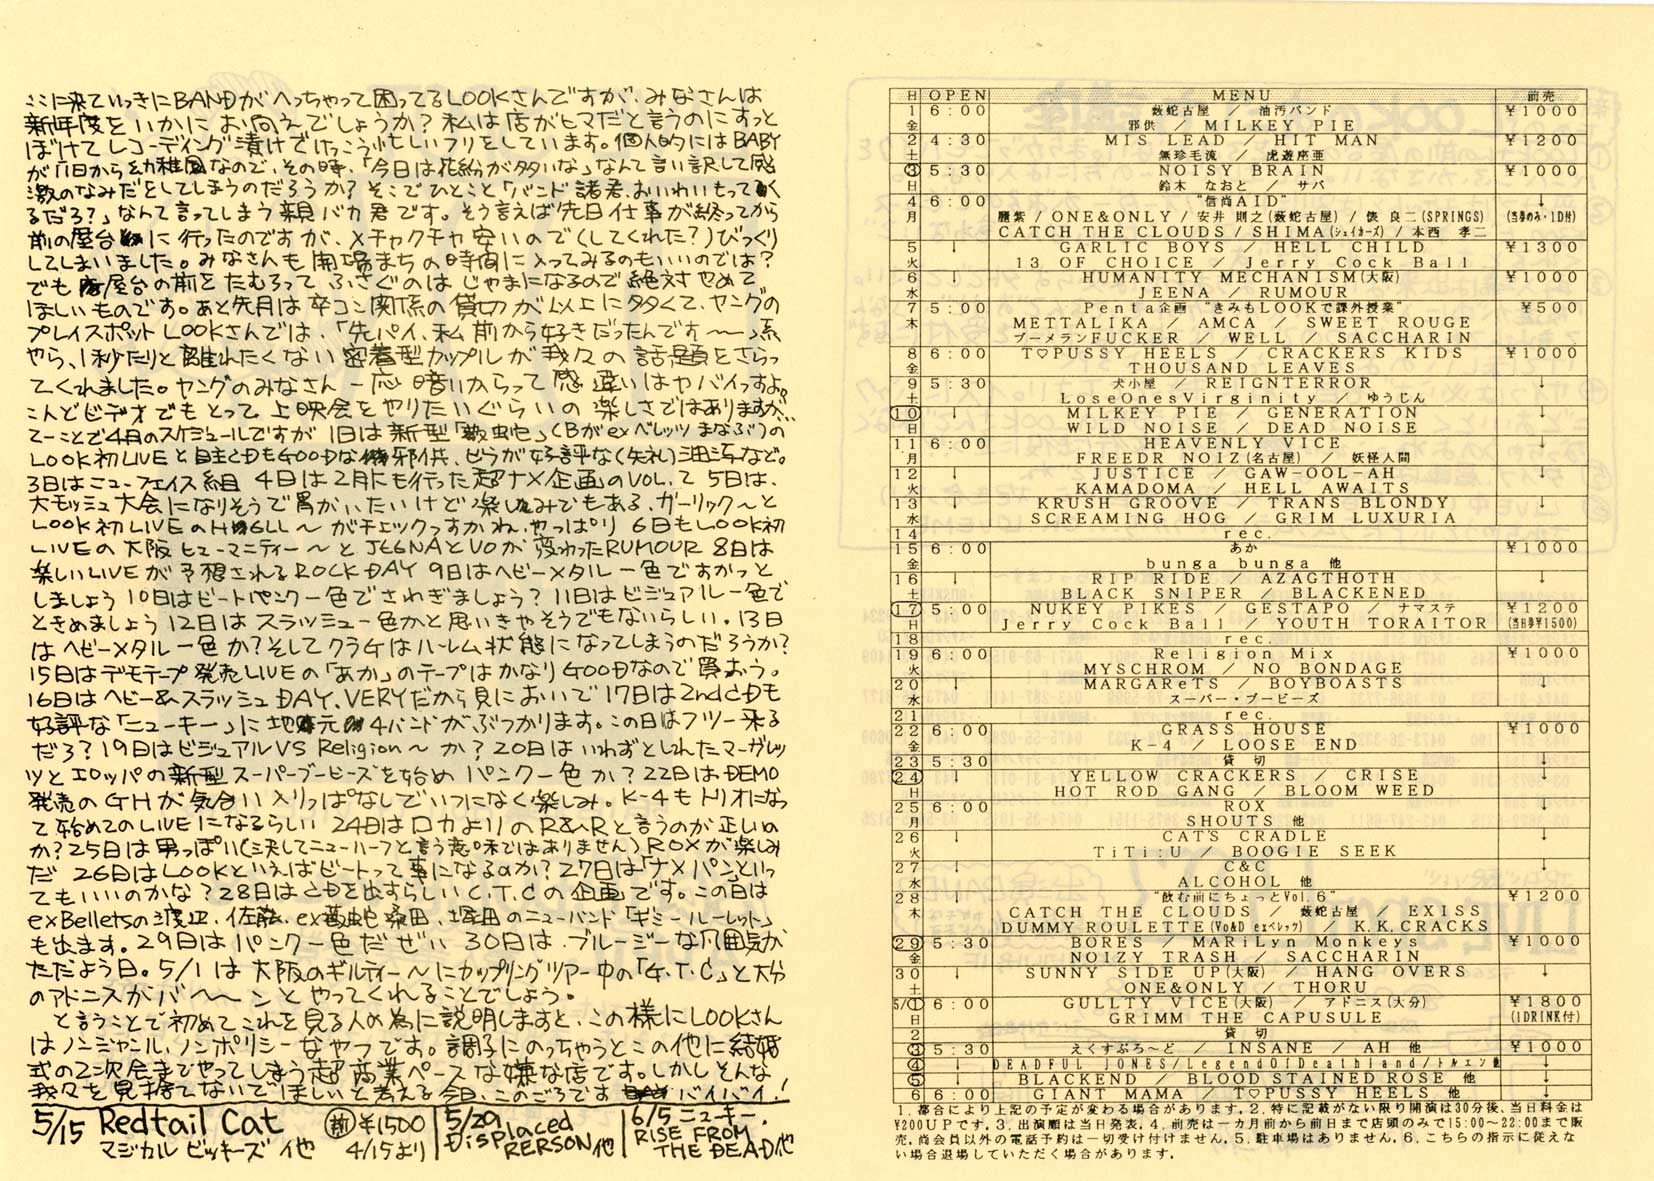 ここに来ていっきにBANDがへっちゃって困ってるLOOKさんですが、みなさんは
新年度をいかにお向えでしょうか?私は店がヒマだと言うのにすっと
ぼけてレコーディング漬けでけっこう忙しいフリをしています。個人的にはBABY
が11日から幼稚園なので、その時、「今日は花紛が多いな」なんて言い訳して感
激のなみだをしてしまうのだろうか?そこでひとこと「バンド諸君、おいわいもってく
るだろ?」なんて言ってしまう親バカ君です。そう言えば先日仕事が終ってから
前の屋台に行ったのですが、メチャクチャ安いので(してくれた?)びっくり
してしまいました。みなさんも開場まちの時間に入ってみるのもいいのでは?
でも屋台の前をたむろってふさぐのはじゃまになるので絶対やめて
ほしいものです。あと先月は卒コン関係の貸切が以上に多くて、ヤングの
プレイスポットLOOKさんでは、「先パイ、私前から好きだったんです〜」系
やら、1秒たりと離れたくない密着型カップルが我々の話題をさらっ
てくれました。ヤングのみなさん一応暗いからって感違いはヤバイっすよ。
こんどビデオでもとって上映会をやりたいぐらいの楽しさではありますが…
てーことで4月のスケジュールですが1日は新型「薮蛇」(Bがexベレッツまなぶ)の
LOOK初LIVEと自主CDもGOODな邪供、ビラが好評な(失礼)油汚など。
3日はニューフェイス組 4日は2月にも行った超ナメ企画のVOL.て5日は、
大モッシュ大会になりそうで胃がいたいけど楽しみでもある、ガーリック〜と
LOOK初LIVEのHELL〜がチェックっすかね、やっぱり6日もLOOK初
LIVEの大阪ヒューマニティー〜とJEENAとVoが変わったRUMOUR 8日は
楽しいLIVEが予想されるROCK DAY 9日はヘビーメタル一色ですかっと
しましょう10日はビートパンク一色でさわぎましょう?11日はビジュアル一色で
ときめましょう12日はスラッシュ一色かと思いきやそうでもないらしい。13日
はヘビーメタル一色か?そしてクラGはハーレム状態になってしまうのだろうか?
15日はデモテープ発売LIVEの「あか」のテープはかなりGOODなので買おう。
16日はヘビー&スラッシュDAY、VERYだから見においで17日は2ndCDも
好評な「ニューキー」に地元4バンドがぶつかります。この日はフツー来る
だろ?19日はビジュアルVS Religion〜か?20日はいわずとしれたマーガレッ
ツとエロッパの新型スーパーブービーズを始めパンク一色か?22日は、DEMO
発売のGHが気合い入りっぱなしでいつになく楽しみ。K-4もトリオになっ
て始めてのLIVEになるらしい24日はロカよりのR&Rと言うのが正しいの
か?25日は男っぽい(決してニューハーフと言う意味ではありません)ROXが楽しみ
だ 26日はLOOKといえばビートって事になるのか?27日は「ナメパン」とい
てもいいのかな?28日はCDを出すらしいC.T.Cの企画です。この日は
exBelletsの渡辺、佐藤、ex薮蛇桑田、塚田のニューバンド「ダミールーレット」
も出ます。29日はパンク一色だぜい30日は、ブルージーな凡囲気が
ただよう日。5/1は大阪のギルティー〜にカップリングツアー中の「G.T.C」と大分
のアドニスがバ〜〜ンとやってくれることでしょう。
と言うことで初めてこれを見る人の為に説明しますと、この様にLOOKさん
はノンジャンル、ノンポリシーなやつです。調子にのっちゃうとこの他に結婚
式の2次会までやってしまう超商業ペースな嫌な店です。しかしそんな
我々を見捨てないでほしいと考える今日、このごろです バイバイ!
5/15 Redtail Cat マジカルビッキーズ他 前¥1500 4/15より
5/29 Displaced RERSON他
6/5 ニューキー、RISE FROM THE DEAD他
日 OPEN MENU 前売
1 金 6:00 薮蛇古屋 / 油汚バンド ¥1000
邪供 / MILKEY PIE
2 土 4:30 MIS LEAD / HIT MAN ¥1200
無珍毛流 / 虎遊座亜
3 日 5:30 NOISY BRAIN ¥1000
鈴木 なおと / サバ
4 月 6:00 "信尚AID" ↓
朧紫 / ONE&ONLY / 安井 則之(薮蛇古屋) / 懐 良二(SPRINGS) (当夢のみ・1D付)
CATCH THE CLOUDS / SHIMA(シェイカーズ) / 本西 孝二
5 火 ↓ GARLIC BOYS / HELL CHILD ¥1300
13 OF CHOICE / Jerry Cock Ball
6 水 ↓ HUMANITY MECHANISM(大阪) ¥1000
JEENA / RUMOUR
7 木 5:00 Penta企画 "きみもLOOKで課外授業" ¥500
METTALIKA / AMCA / SWEET ROUGE
ブーメランFUCKER / WELL / SACCHARIN
8 金 6:00 T♡PUSSY HEELS / CRACKERS KIDS ¥1000
THOUSAND LEAVES
9 土 5:30 犬小屋 / REIGNTERROR ↓
LoseOnesVirginity / ゆうじん
10 日 ↓ MILKEY PIE / GENERATION ↓
WILD NOISE / DEAD NOISE
11 月 6:00 HEAVENLY VICE ↓
FREEDR NOIZ(名古屋) / 妖怪人間
12 火 ↓ JUSTICE / GAW-OOL-AH ↓
KAMADOMA / HELL AWAITS
13 水 ↓ KRUSH GROOVE / TRANS BLONDY ↓
SCREAMING HOG / GRIM LUXURIA
14 rec.
15 金 6:00 あか ¥1000
bunga bunga 他
16 土 ↓ RIP RIDE / AZAGTHOTH ↓
BLACK SNIPER / BLACKENED
17 日 5:00 NUKEY PIKES / GESTAPO / ナマステ ¥1200
Jerry Cock Ball / YOUTH TORAITOR (当日夢¥1500)
18 rec.
19 火 6:00 Religion Mix ¥1000
MYSCHROM / NO BONDAGE
20 水 ↓ MARGAReTS / BOYBOASTS ↓
スーパー・ブービーズ
21 rec.
22 金 6:00 GRASS HOUSE ¥1000
K-4 / LOOSE END
23 5:30 貸 切
24 日 ↓ YELLOW CRACKERS / CRISE ¥1000
HOT ROD GANG / BLOOM WEED
25 月 6:00 ROX ↓
SHOUTS 他
26 火 ↓ CAT'S CRADLE ↓
TiTi:U / BOOGIE SEEK
27 水 ↓ C&C ↓
ALCOHOL 他
28 木 ↓ "飲む前にちょっとVol.6" ¥1200
CATCH THE CLOUDS / 薮蛇古屋 / EXISS
DUMMY ROULETTE(Vo&D exベレッツ) / K.K.CRACKS
29 金 5:30 BORES / MARiLyn Monkeys ¥1000
NOIZY TRASH / SACCHARIN
30 土 ↓ SUNNY SIDE UP(大阪) / HANG OVERS ↓
ONE&ONLY / THORU
5/1 日 6:00 GULLTY VICE(大阪) / アドニス(大分) ¥1800
GRIMM THE CAPUSULE (1DRINK付)
2 貸 切
3 5:30 えくすぷろ〜ど / INSANE / AH 他 ¥1000
4 ↓ DEADFUL JONES/LegendOfDeathland/トルエン他 ↓
5 ↓ BLACKEND / BLOOD STAINED ROSE 他 ↓
6 6:00 GIANT MAMA / T♡PUSSY HEELS 他 ↓
1.都合により上記の予定が変わる場合があります。2.特に記載がない限り開演は30分後、当日料金は
¥200UPです。3.出演順は当日発表。4.前売は一カ月前から前日まで店頭のみで15:00〜22:00まで販
売。尚会員以外の電話予約は一切受け付けません。5.駐車場はありません。6.こちらの指示に従えな
い場合退場していただく場合があります。